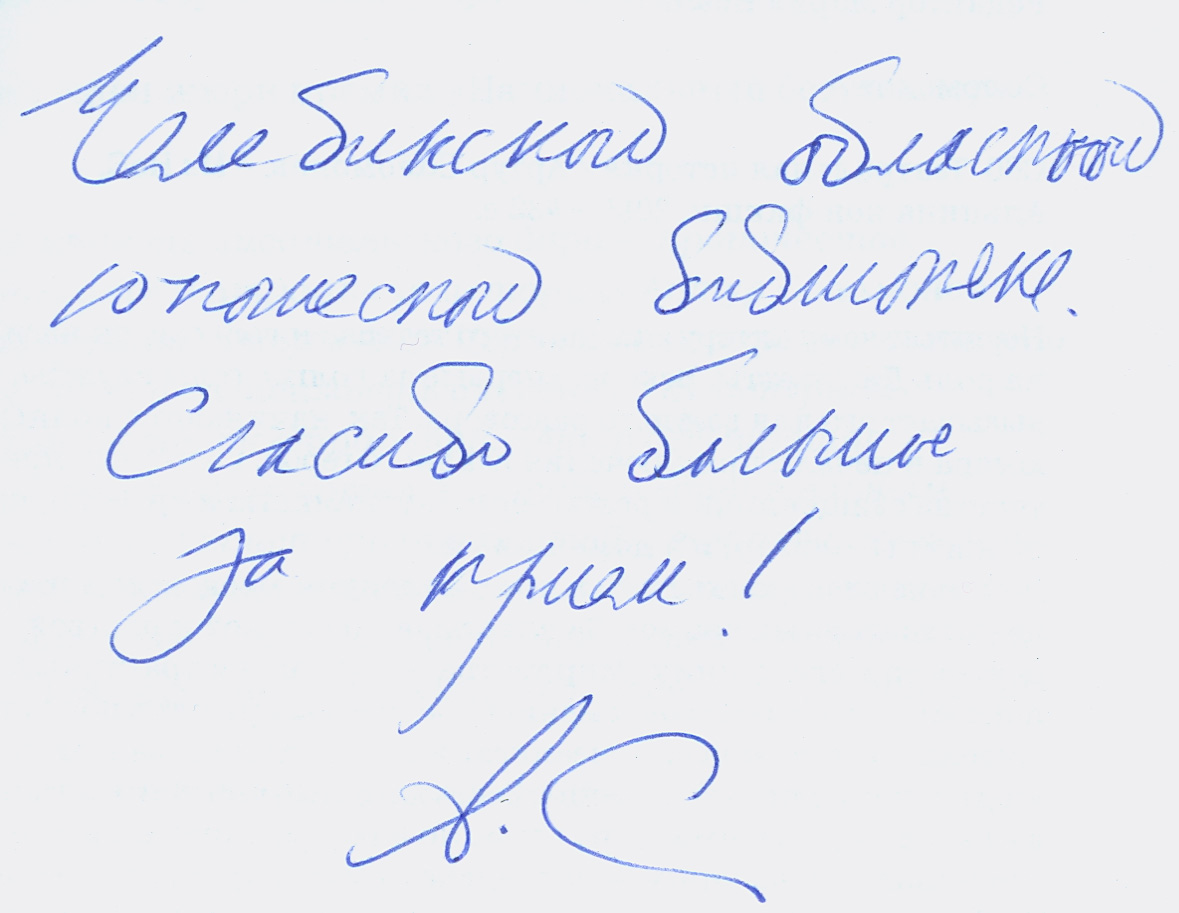 Челябинской областной
юношеской библиотеке.
Спасибо большое
за прием!
А. С